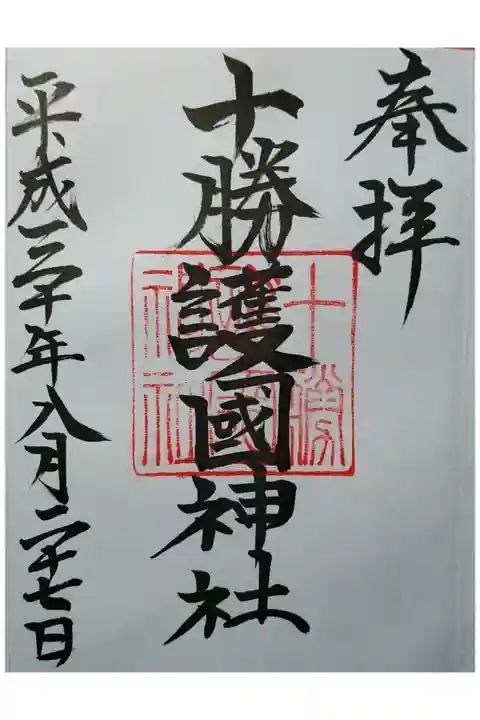 奉拝
十勝護國神社
十勝護國神社
平成三十年八月二十七日